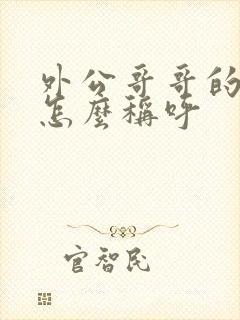 外公哥哥的
怎麼稱呼
官智民